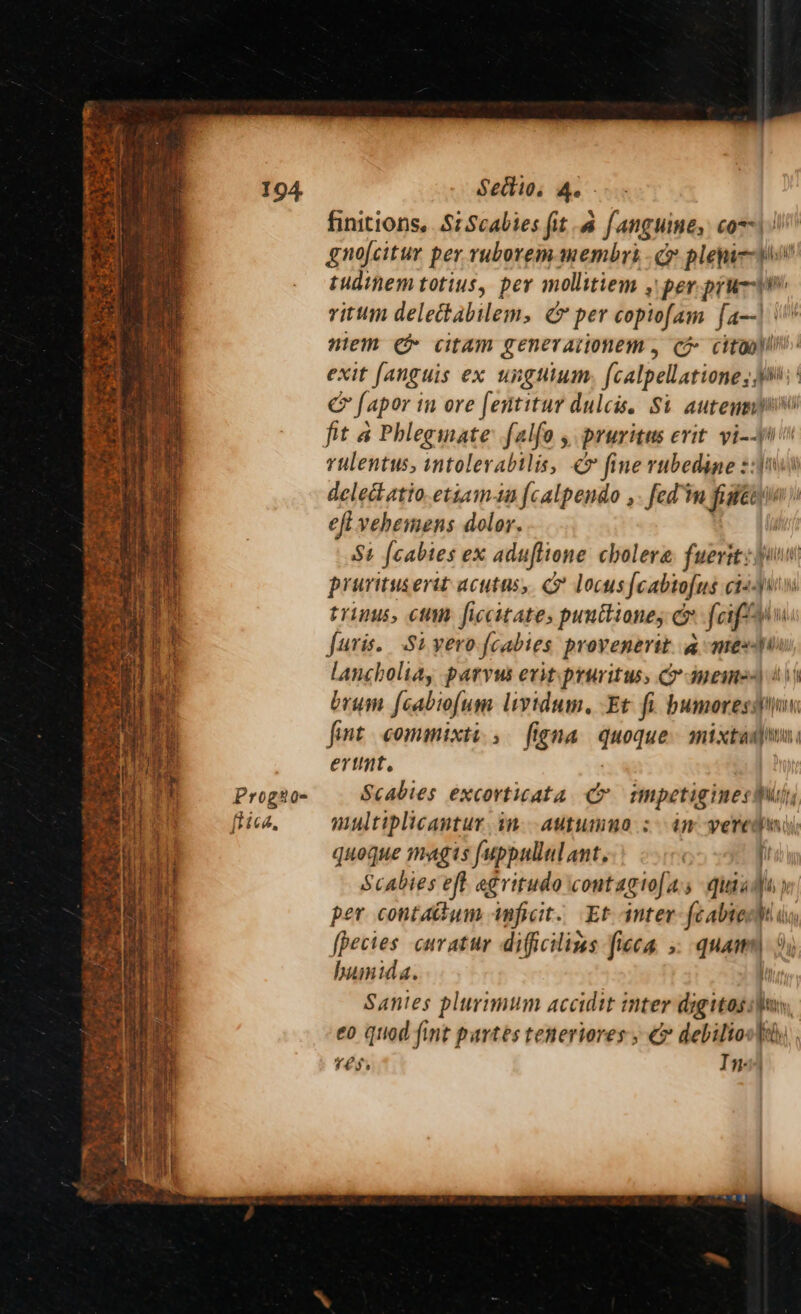 194 Sectio. 4.
finitions. Si Scabies fit à ſanguine, co-
gnoſcitur per ruborem membri & pleni-
tudinem totius, per mollitiem, per pru-
ritum delectabilem, & per copioſam ſa-
niem & citam generationem, & cito
exit ſanguis ex unguium ſcalpellatione;
& ſapor in ore ſentitur dulcis. Si autem
fit à Phlegmate ſalſo, pruritus erit vi-
rulentus, intolerabilis, & ſine rubedine:
delectatio etiam in ſcalpendo, ſed in fine
eſt vehemens dolor.
Si ſcabies ex aduſtione cholera fuerit:
pruritus erit acutus, & locus ſcabioſus ci-
trinus, cum ſiccitate, punctione, & ſciſ-
ſuris. Si vero ſcabies provenerit à me-
lancholia, parvus erit pruritus, & mem-
brum ſcabioſum lividum. Et ſi humores
ſint commixti, ſigna quoque mixta
erunt.
Progno- Scabies excorticata & impetigines
ſtica. multiplicantur in autumno: in vere
quoque magis ſuppullulant.
Scabies eſt ægritudo contagioſa, quia
per contactum inficit. Et inter ſcabiei
ſpecies curatur difficilius ſicca, quam
humida.
Sanies plurimum accidit inter digitos:
eo quod ſint partes teneriores, & debilio-
res. In-